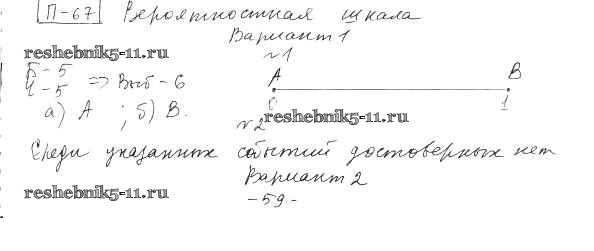 П-67 Вероятностная шкала
Вариант 1
reshebnik5-11.ru
№1
Б - 5
Ч - 5 => Выб - 6
A B
0 1
а) А ; б) В.
reshebnik5-11.ru
№2
Среди указанных событий достоверных нет
Вариант 2
reshebnik5-11.ru
- 59 -